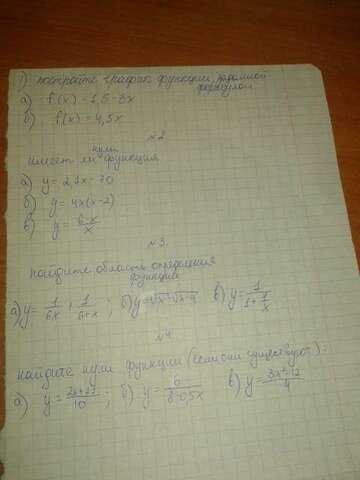 1) постройте график функции, заданной
формулой
а) f(x) = 1,5 - 3x
б) f(x) = 4,5x
№2
нули
имеет ли функция
а) y = 2,1x - 70
б) y = 4x(x-2)
в) y = 6-x/x
№3
найдите область определения
функции
а) y = 1/6x + 1/6+x ; б) y = √x + √x-4 в) y = 1/1+1/x
№4
найдите нули функции (если они существуют):
а) y = 2x+27/10 ; б) y = 6/8-0,5x в) y = 3x²-12/4